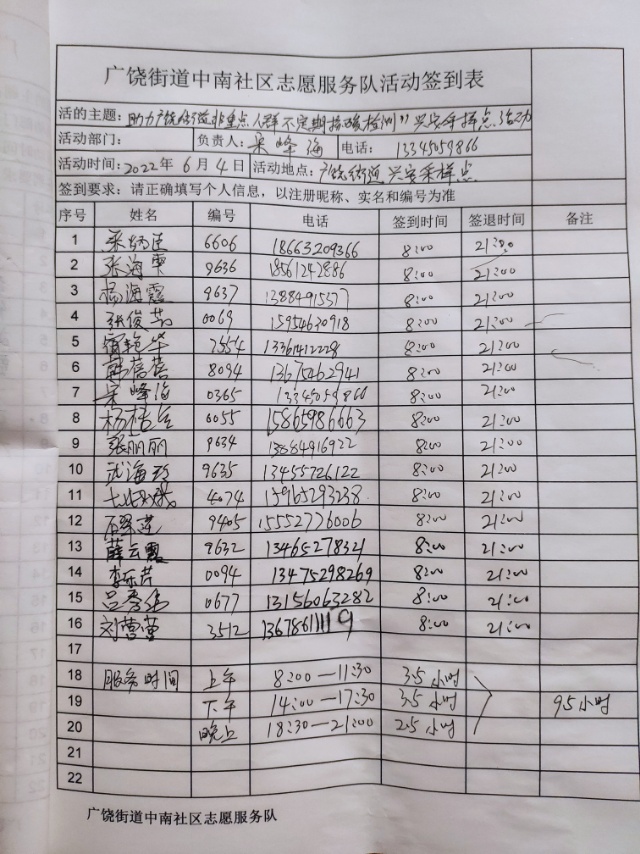 广饶街道中南社区志愿服务队活动签到表
活的主题：助力广饶街道非重点人群不定期核酸检测"兴安采样点活动
活动部门： 负责人：宋峰海 电话：13345059866
活动时间：2022年6月4日 活动地点：广饶街道兴安采样点
签到要求：请正确填写个人信息，以注册昵称、实名和编号为准
序号 姓名 编号 电话 签到时间 签退时间 备注
1 6606 18663209366 8:00 21:00
2 张海 9636 18561242886 8:00 21:00
3 杨海霞 9637 13884915377 8:00 21:00
4 张俊 0069 15954630918 8:00 21:00
5 7554 13361412228 8:00 21:00
6 蓓蓓 8094 13675262941 8:00 21:00
7 宋峰海 0365 13345059866 8:00 21:00
8 杨桂 0055 15865986663 8:00 21:00
9 张丽丽 9634 13884916922 8:00 21:00
10 武海玲 9635 13455726122 8:00 21:00
11 4074 15965293238 8:00 21:00
12 石翠莲 9405 15552776006 8:00 21:00
13 薛云霞 9632 13465278321 8:00 21:00
14 李乐芹 0094 13475298269 8:00 21:00
15 吕秀 0677 13156063282 8:00 21:00
16 刘营营 3512 13678611119 8:00 21:00
17
18 服务时间 上午 8:00—11:30 3.5小时
19 下午 14:00—17:30 3.5小时 9.5小时
20 晚上 18:30—21:00 2.5小时
21
22
广饶街道中南社区志愿服务队